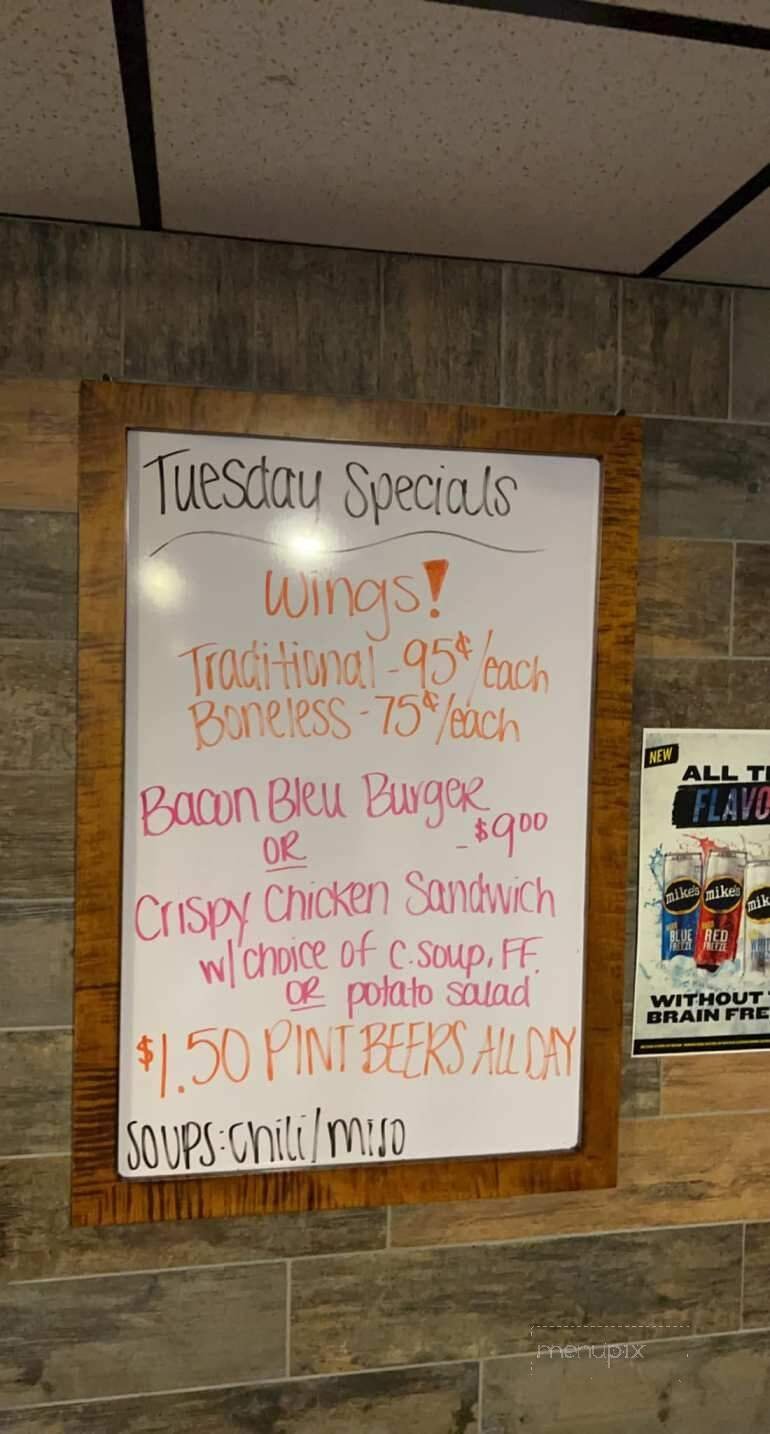 Tuesday Specials
Wings!
Traditional - 95¢/each
Boneless - 75¢/each
Bacon Bleu Burger
OR - $9.00
Crispy Chicken Sandwich
w/ choice of c. soup, FF.
OR potato salad
$1.50 PINT BEERS ALL DAY
SOUPS: Chili/miso
NEW
ALL T
FLAVO
mike's mike's mik
BLUE FREEZE
RED FREEZE
WITHOUT
BRAIN FRE
menupix